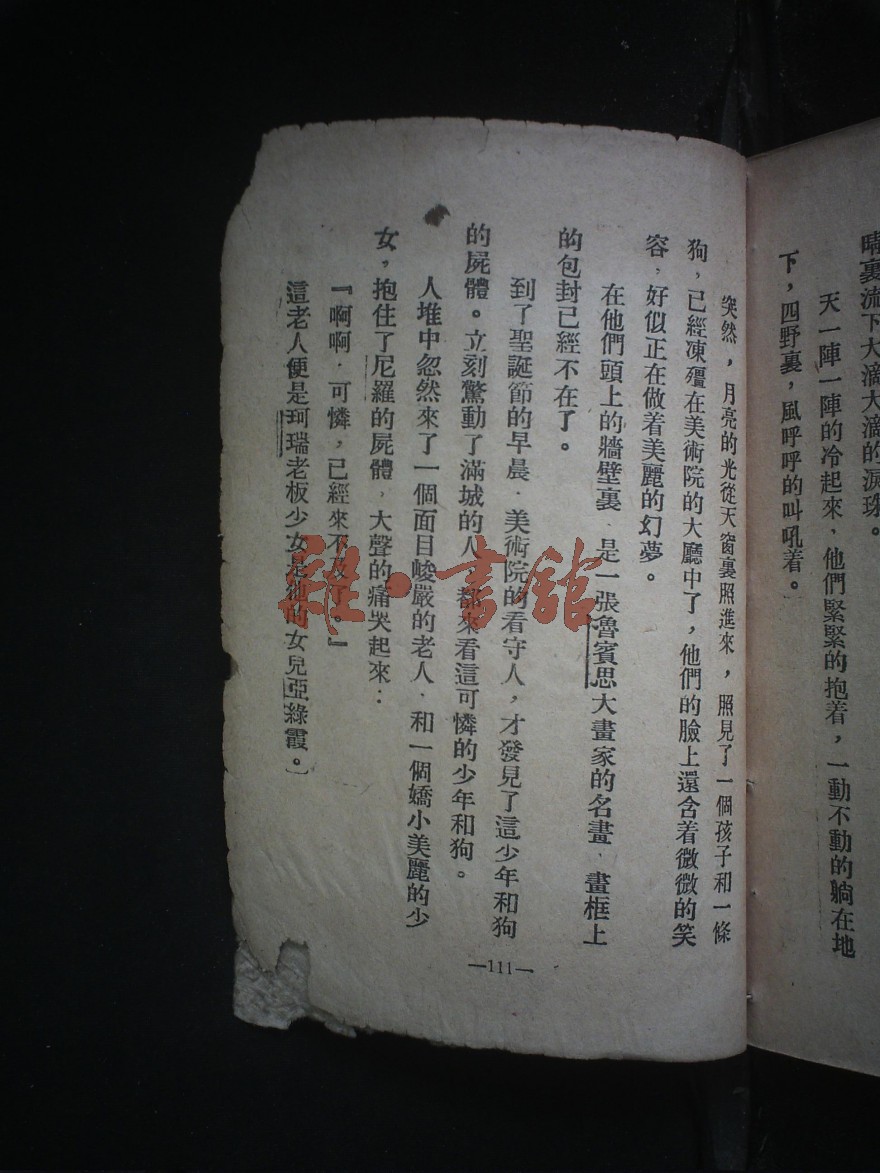 晴裏流下大滴大滴的淚珠。
天一陣一陣的冷起來，他們緊緊的抱着，一動不動的躺在地
下，四野裏，風呼呼的叫吼着。
突然，月亮的光從天窗裏照進來，照見了一個孩子和一條
狗，已經凍殭在美術院的大廳中了，他們的臉上還含着微微的笑
容，好似正在做着美麗的幻夢。
在他們頭上的牆壁裏，是一張魯賓思大畫家的名畫，畫框上
的包封已經不在了。
到了聖誕節的早晨，美術院的看守人，才發見了這少年和狗
的屍體。立刻驚動了滿城的人，都來看這可憐的少年和狗。
人堆中忽然來了一個面目峻嚴的老人，和一個嬌小美麗的少
女，抱住了尼羅的屍體，大聲的痛哭起來：
『啊啊，可憐，已經來不及了。』
這老人便是珂瑞老板少女是他的女兒亞綠霞。
—111—
雜·書館